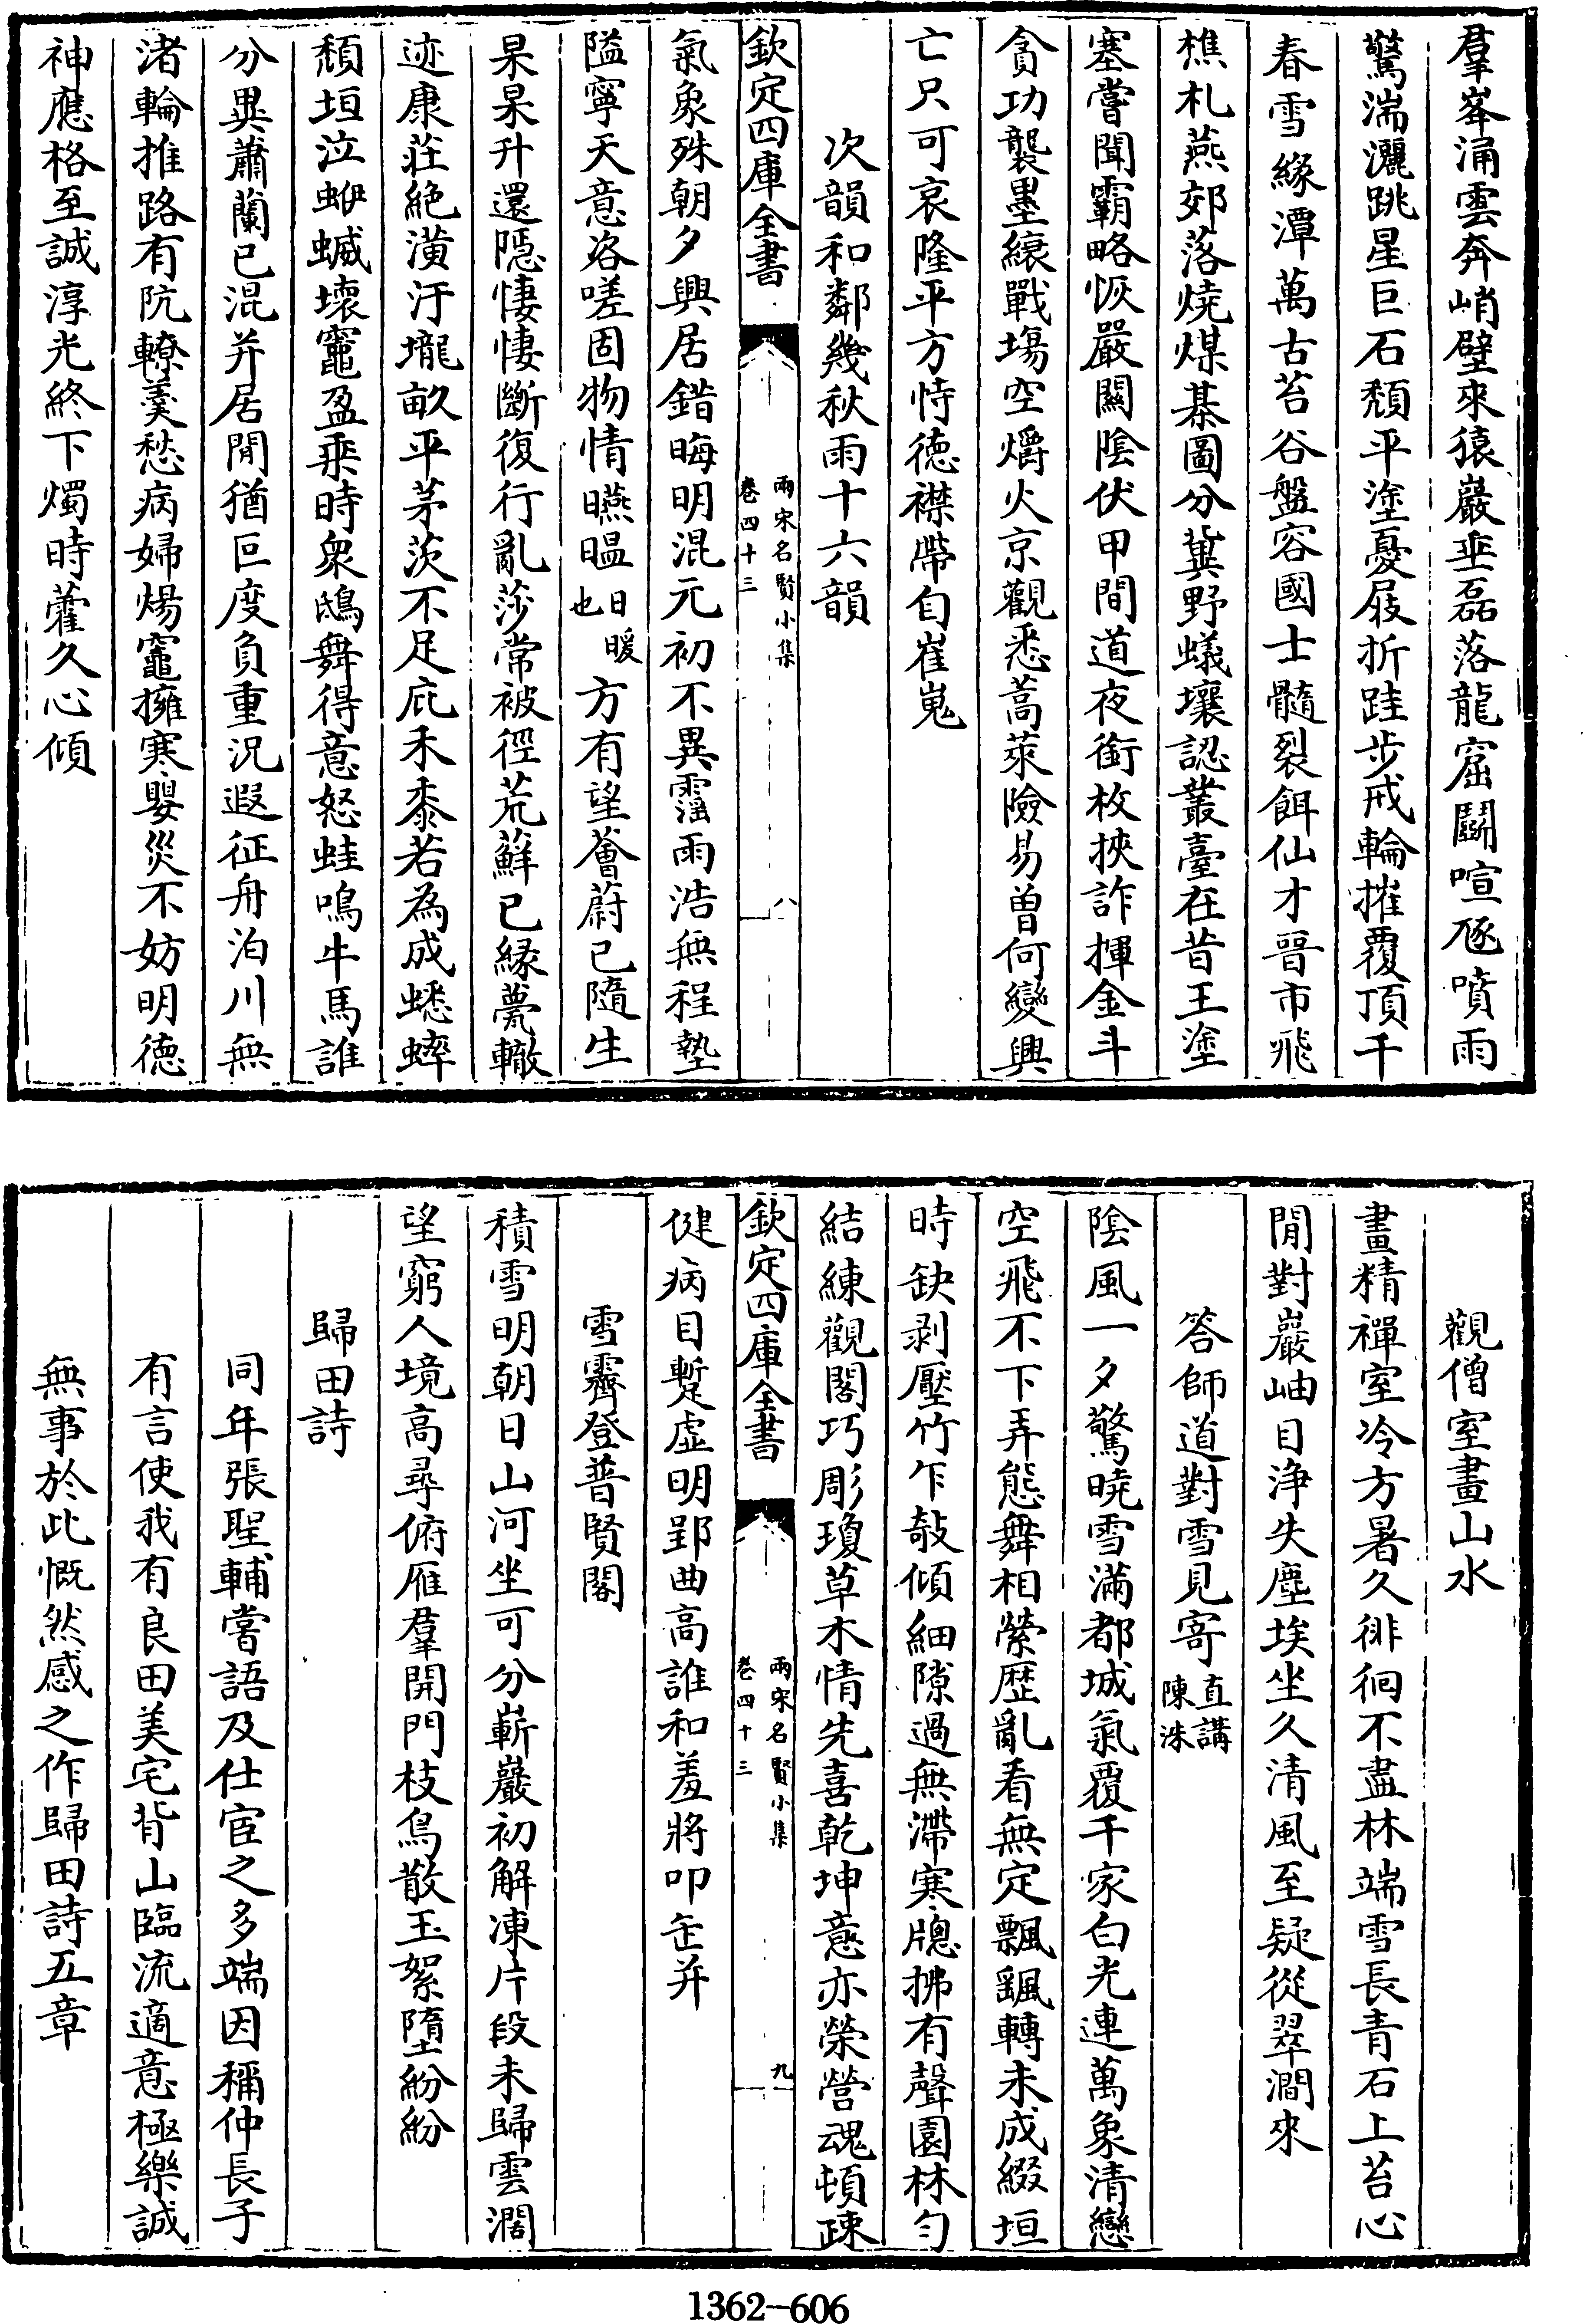 羣峯涌雲奔峭壁來猿巖垂磊落龍窟鬬喧豗噴雨
驚湍灑跳星巨石頽平塗憂屐折跬步戒輪摧覆頂千
春雪緣潭萬古苔谷盤容國士髓裂餌仙才晉市飛
樵札燕郊落燒煤棊圖分冀野蟻壤認叢臺在昔王塗
塞嘗聞霸略恢嚴闗陰伏甲間道夜銜枚挾詐揮金斗
貪功襲墨縗戰塲空爝火京觀悉蒿萊險易曽何變興
亡只可哀隆平方恃徳襟帶自崔嵬
次韻和鄰幾秋雨十六韻
欽定四庫全書
兩宋名賢小集
卷四十三
八
氣象殊朝夕興居錯晦明混元初不異霪雨浩無程墊
隘寧天意咨嗟固物情曣㬈日暖也方有望薈蔚已隨生
杲杲升還隠悽悽斷復行亂莎常被徑荒蘚已緣甍轍
迹康莊絶潢汙壠畝平茅茨不足庇禾黍若為成蟋蟀
頽垣泣蛜蝛壊竈盈乘時衆鴟舞得意怒蛙鳴牛馬誰
分異蕭蘭已混并居閒猶叵度負重況遐征舟泊川無
渚輪推路有阬轑羮愁病婦煬竈擁寒嬰災不妨明徳
神應格至誠淳光終下燭時藿久心傾
觀僧室畫山水
畫精禪室冷方暑久徘徊不盡林端雪長青石上苔心
閒對巖岫目浄失塵埃坐久清風至疑從翠澗來
答師道對雪見寄直講陳洙
陰風一夕驚曉雪滿都城氣覆千家白光連萬象清戀
空飛不下弄態舞相縈歴亂看無定飄颻轉未成綴垣
時缺剥壓竹乍敧傾細隙過無滯寒牕拂有聲園林勻
結練觀閣巧彫瓊草木情先喜乾坤意亦榮營魂頓疎
欽定四庫全書
兩宋名賢小集
卷四十三
九
健病目蹔虛明郢曲高誰和羞將叩缶并
雪霽登普賢閣
積雪明朝日山河坐可分嶄巖初解凍片段未歸雲濶
望窮人境高尋俯雁羣開門枝鳥散玉絮墮紛紛
歸田詩
同年張聖輔嘗語及仕宦之多端因稱仲長子
有言使我有良田美宅背山臨流適意極樂誠
無事於此慨然感之作歸田詩五章
1362—606